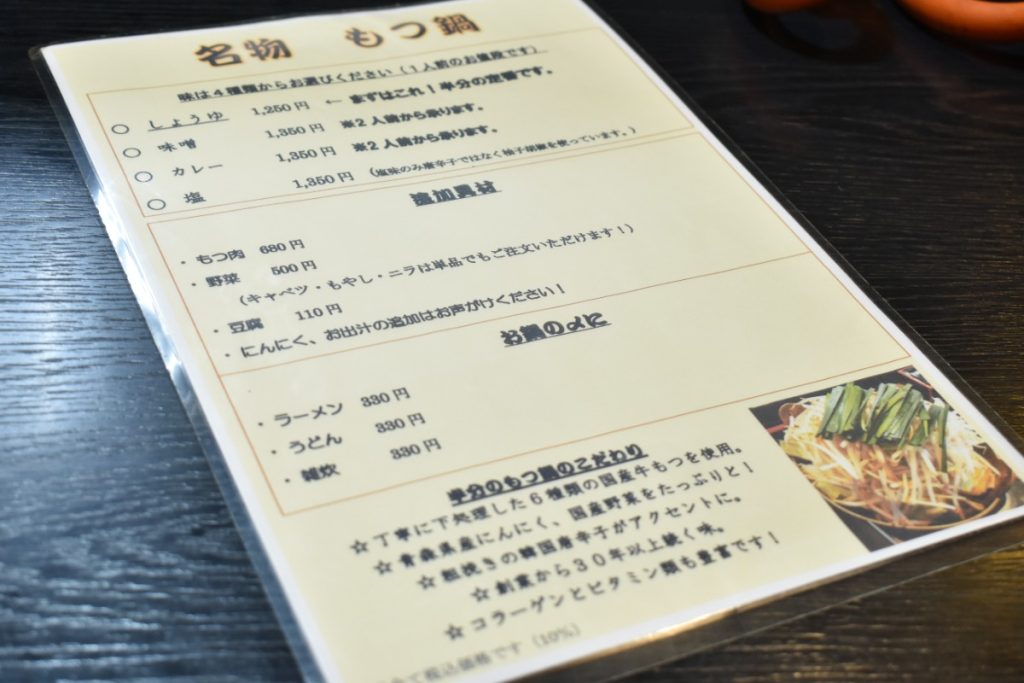 名物　もつ鍋
味は４種類からお選びください（１人前のお値段です）
○　しょうゆ　1,250円　←　まずはこれ！半分の定番です。
○　味噌　1,350円　※２人前から承ります。
○　カレー　1,350円　※２人前から承ります。
○　塩　1,350円（塩味のみ唐辛子ではなく柚子胡椒を使っています。）
追加具材
・もつ肉　680円
・野菜　500円
（キャベツ・もやし・ニラは単品でもご注文いただけます！）
・豆腐　110円
・にんにく、お出汁の追加はお声がけください！
お鍋の〆に
・ラーメン　330円
・うどん　330円
・雑炊　330円
半分のもつ鍋のこだわり
☆丁寧に下処理した６種類の国産牛もつを使用。
☆青森県産にんにく、国産野菜をたっぷりと！
☆粗挽きの韓国唐辛子がアクセントに。
☆創業から３０年以上続く味。
☆コラーゲンとビタミン類も豊富です！
て税込価格です（10%）